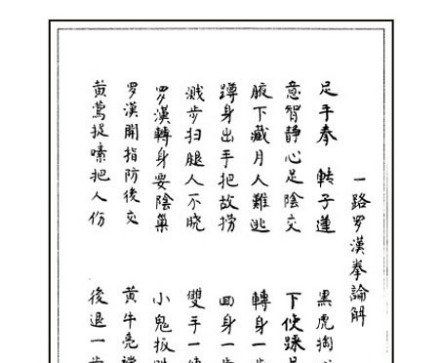 一路罗漢拳論解
足手拳 轉子蓮 黑虎掏
意智静心足陰交 下使踩
腋下藏月人難逃 轉身一步
蹲身出手把故捞 回身一步
溅步扫腿人不晓 雙手一
罗漢轉身要陰巢 小鬼扳
罗漢開指防後交 黄牛亮
黄莺捉嗉把人伤 後退一步